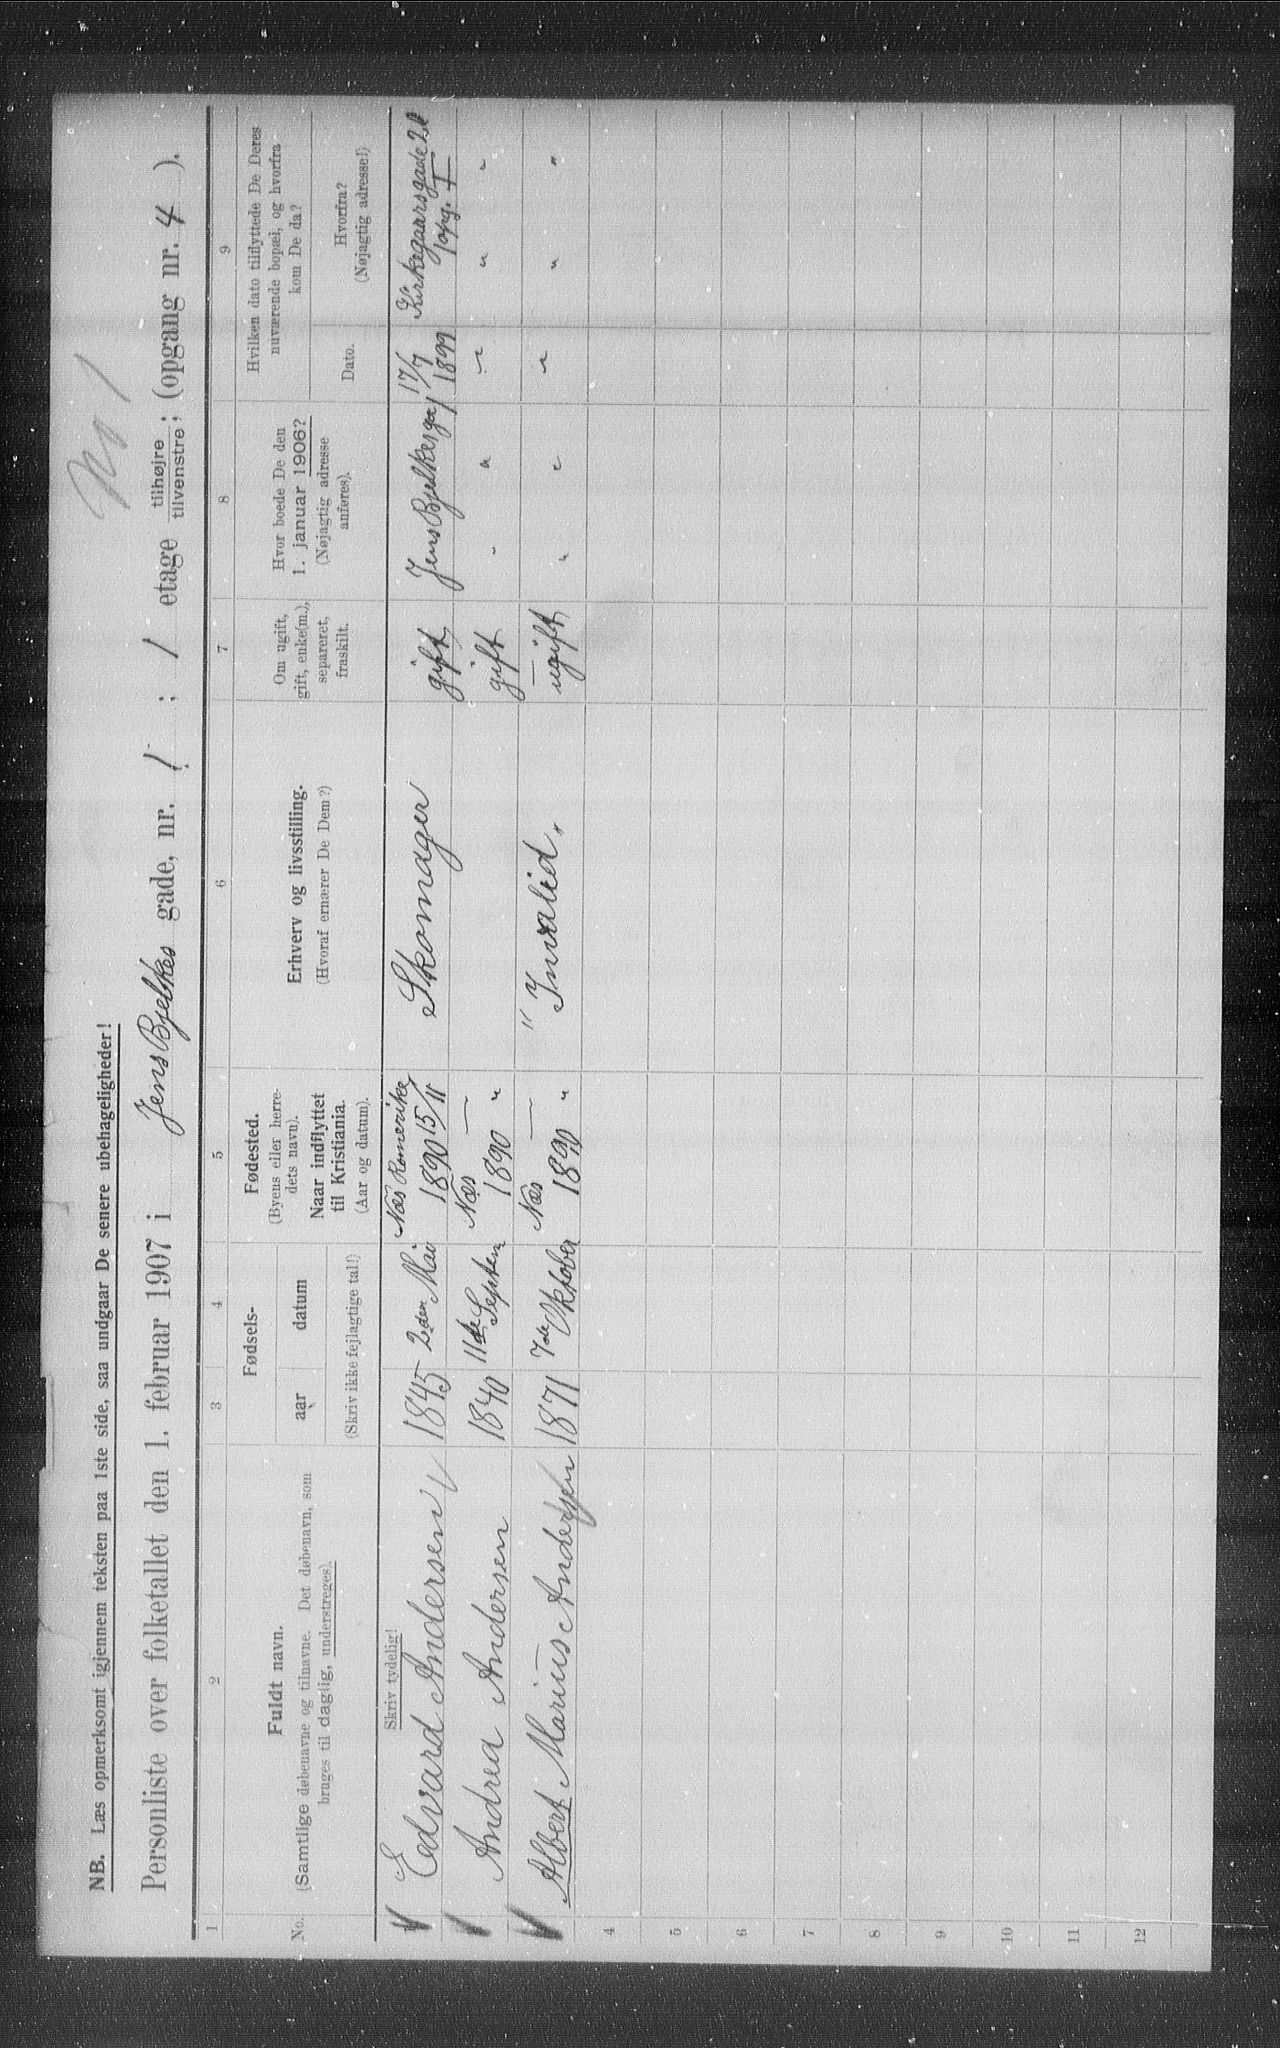 No 1
NB. Læs opmerksomt igjennem teksten paa 1ste side, saa undgaar De senere ubehageligheder!
Personliste over folketallet den 1. februar 1907 i Jens Bjelkes gade, nr. 1 ; 1 etage tilhøjre tilvenstre ; (opgang nr. 4 ).
1 2 3 4 5 6 7 8 9
No.
Fuldt navn.
(Samtlige døbenavne og tilnavne. Det døbenavn, som
bruges til daglig, understreges).
Fødsels-
aar datum
(Skriv ikke fejlagtige tal!)
Fødested.
(Byens eller herre-
dets navn).
Naar indflyttet
til Kristiania.
(Aar og datum).
Erhverv og livsstilling.
(Hvoraf ernærer De Dem?)
Om ugift,
gift, enke(m.),
separeret,
fraskilt.
Hvor boede De den
1. januar 1906?
(Nøjagtig adresse
anføres).
Hvilken dato tilflyttede De Deres
nuværende bopæl, og hvorfra
kom De da?
Dato.
Hvorfra?
(Nøjagtig adresse!)
Skriv tydelig!
Edvard Andersen 1845 2den Mai Næs Romerike 1890 15/11 Skomager gift Jens Bjelkesga 1 17/7 1899 Kirkegaarsgade 21 opg. I
Andrea Andersen 1840 11de Septem Næs — 1890 " gift " " " " "
Albert Marius Andersen 1871 7de Oktober Næs — 1890 " " Invalid " ugift " " " " "
4
5
6
7
8
9
10
11
12